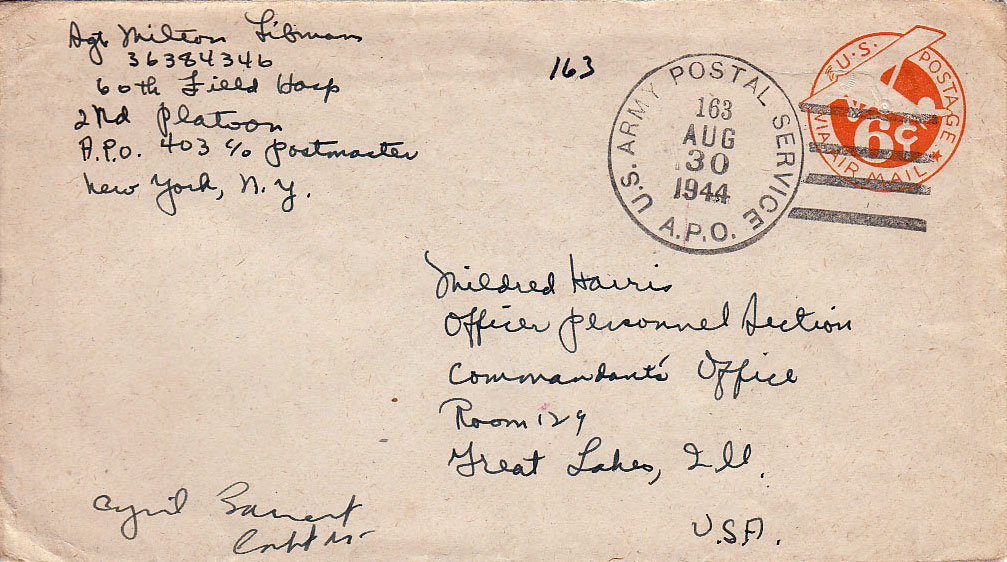 Sgt Milton Libman
36384346
60th Field Hosp
2nd Platoon
A.P.O. 403 c/o Postmaster
New York, N.Y.
163
U.S. ARMY POSTAL SERVICE
163
AUG
30
1944
A.P.O.
U.S. POSTAGE
6¢
VIA AIR MAIL
Mildred Harris
Officer Personnel Section
Commandant's Office
Room 129
Great Lakes, Ill.
U.S.A.
Cyril